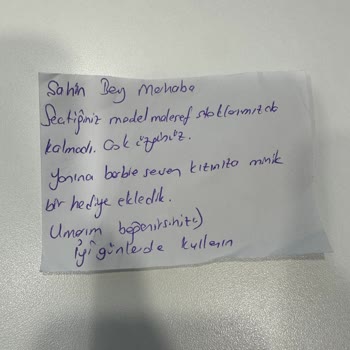 Şahin Bey Merhaba
Seçtiğiniz model malesef stoklarımızda
kalmadı. Çok üzgünüz.
Yanına barbie seven kızınıza minik
bir hediye ekledik.
Umarım beğenirsiniz:)
İyi günlerde kullanın